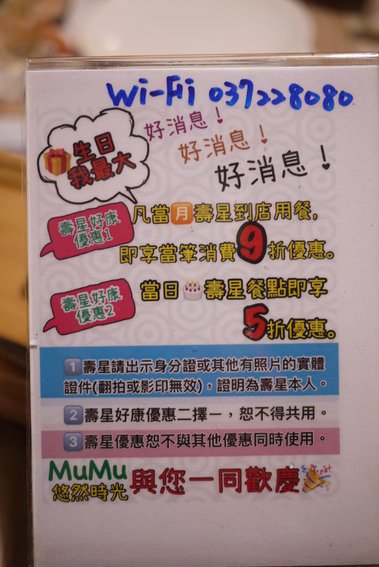 Wi-Fi 037228080
好消息！
好消息！
好消息！
生日
我最大
壽星好康
優惠1
凡當月壽星到店用餐，
即享當筆消費9折優惠。
壽星好康
優惠2
當日壽星餐點即享
5折優惠。
1 壽星請出示身分證或其他有照片的實體
證件(翻拍或影印無效)，證明為壽星本人。
2 壽星好康優惠二擇一，恕不得共用。
3 壽星優惠恕不與其他優惠同時使用。
MuMu
悠然時光
與您一同歡慶